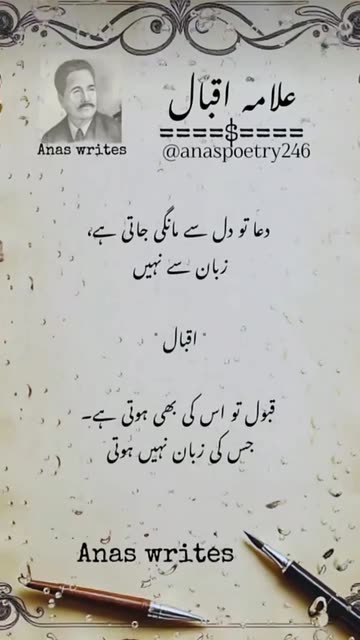 علامہ اقبال
====$====
Anas writes
@anaspoetry246
دعا تو دل سے مانگی جاتی ہے،
زبان سے نہیں
" اقبال "
قبول تو اس کی بھی ہوتی ہے۔
جس کی زبان نہیں ہوتی
Anas writes